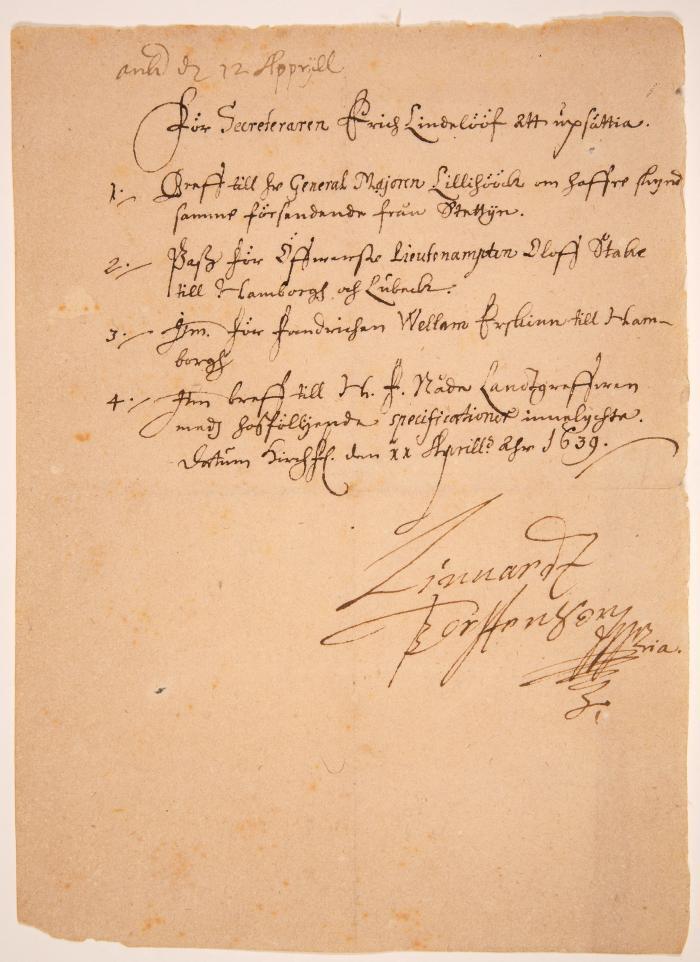 den 12 Appryll
För Secreteraren Erich Lindelööf att upsättia.
1. Breff till hr General Majoren Lillihöök om haffre
samme försendende från Stettijn.
2. Pasz för Öffwerste Lieutenampten Oloff Stake
till Hamborgh och Lübeck.
3. Itm. för Fendrichen Wellam Erskinn till Ham-
borgh
4. Itm breff till H. F. Nåde Landtgreffwen
medh hosfölljende specificationer innelychte.
Datum Kirchff. den xx Aprillis åhr 1639.
Linnardt
Torstenson
mpria.